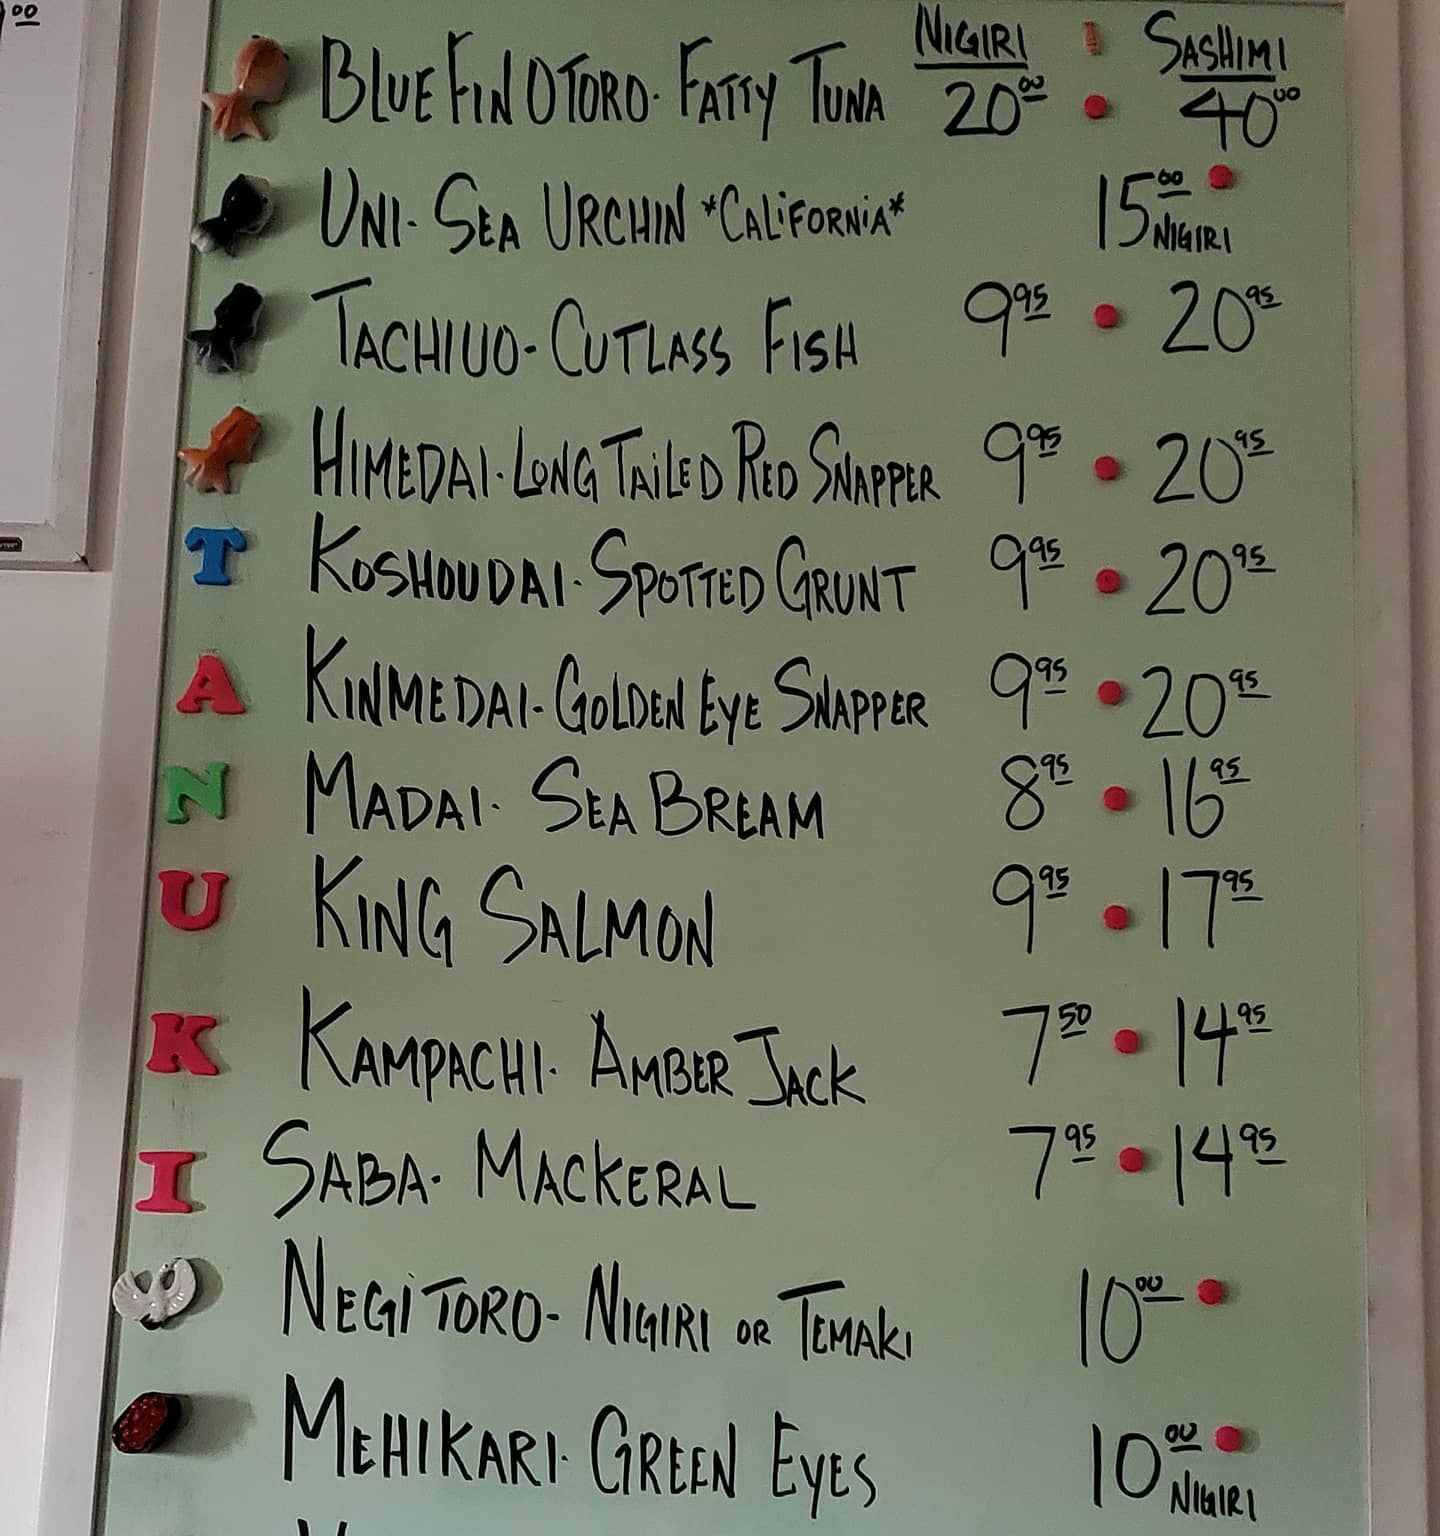 9.00
NIGIRI SASHIMI
BLUE FIN OTORO. FATTY TUNA 20.00 40.00
UNI- SEA URCHIN *CALIFORNIA* 15.00 NIGIRI
TACHIUO- CUTLASS FISH 9.95 20.95
HIMEDAI. LONG TAILED RED SNAPPER 9.95 20.95
T KOSHOUDAI. SPOTTED GRUNT 9.95 20.95
A KINMEDAI- GOLDEN EYE SNAPPER 9.95 20.95
N MADAI. SEA BREAM 8.95 16.95
U KING SALMON 9.95 17.95
K KAMPACHI. AMBER JACK 7.50 14.95
I SABA. MACKERAL 7.95 14.95
NEGITORO- NIGIRI OR TEMAKI 10.00
MEHIKARI. GREEN EYES 10.00 NIGIRI